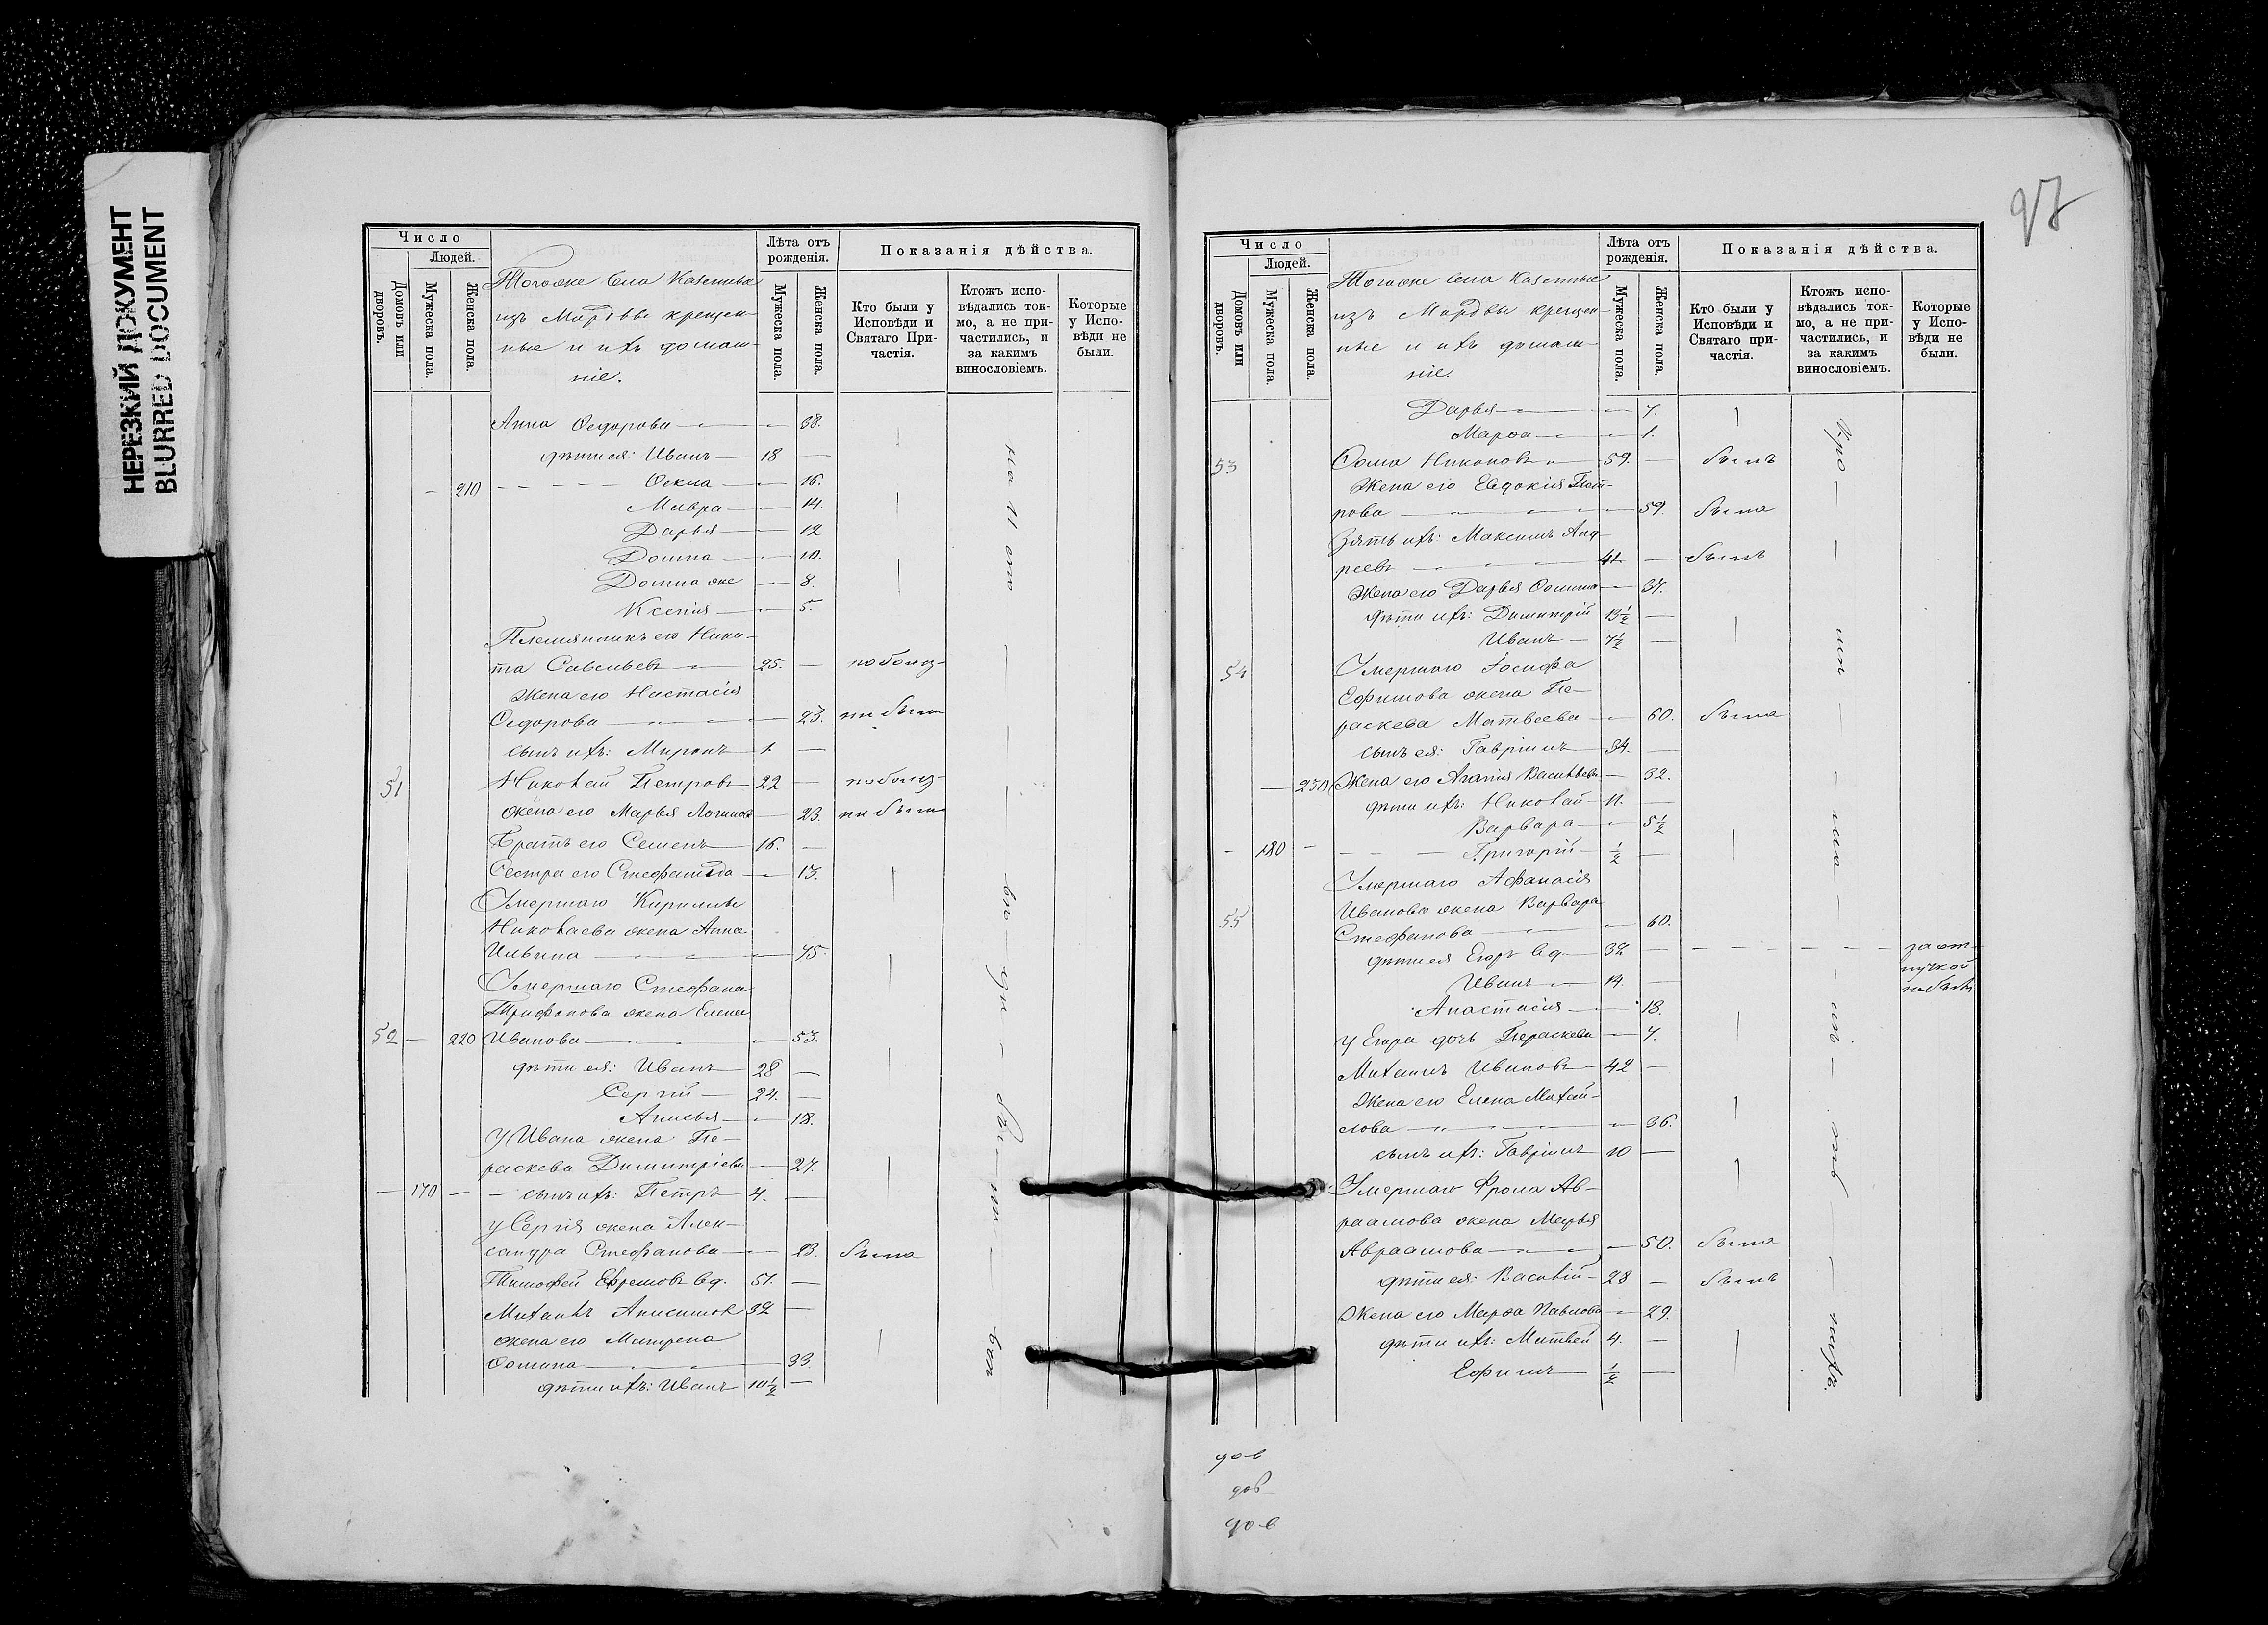 НЕРЕЗКИЙ ДОКУМЕНТ
BLURRED DOCUMENT
Число
Людей.
Домовъ или дворовъ.
Мужеска пола.
Женска пола.
Тогоже Села Казенные
изъ Мордвы крещен-
ные и ихъ домаш-
ніе.
Лѣта отъ рожденія.
Мужеска пола.
Женска пола.
Показанія дѣйства.
Кто были у Исповѣди и Святаго При-частія.
Ктожъ испо-вѣдались ток-мо, а не при-частились, и за какимъ винословіемъ.
Которые у Испо-вѣди не были.
Анна Ѳедорова 38.
дѣти ея: Иванъ 18 —
— 210 Ѳекла 16.
Мавра 14.
Дарья 12
Домна 10.
Домна же 8.
Ксенія 5.
Племянникъ его Ники-
та Савельевъ 25. —
Жена его Настасія
Ѳедорова 23. не были
сынъ ихъ: Миронъ 1. —
51 Николай Петровъ 22 —
жена его Марья Логинова 23. не были
Братъ его Семенъ 16. —
Сестра его Стефанида 13.
Умершаго Кириллы
Николаева жена Анна
Ильина 45.
Умершаго Стефана
Трифонова жена Елена
52 — 220 Иванова 53.
дѣти ея: Иванъ 28 —
Сергій 24. —
Анисья 18.
У Ивана жена Па-
раскева Димитріева 27.
— 170 — сынъ ихъ: Петръ 4. —
у Сергія жена Алек-
сандра Стефанова 23. была
Тимофей Ефремовъ вд. 51. —
Михаилъ Анисимов 32 —
жена его Матрена
Ѳомина 33.
дѣти ихъ: Иванъ 10½ —
97
Число
Людей.
Домовъ или дворовъ.
Мужеска пола.
Женска пола.
Тогоже села Казенные
изъ Мордвы крещен-
ные и ихъ домаш-
ніе.
Лѣта отъ рожденія.
Мужеска пола.
Женска пола.
Показанія дѣйства.
Кто были у Исповѣди и Святаго при-частія.
Ктожъ испо-вѣдались ток-мо, а не при-частились, и за какимъ винословіемъ.
Которые у Испо-вѣди не были.
Дарья 7.
Марѳа 1.
53 Ѳома Никоновъ 59. — былъ
Жена его Евдокія Пет-
рова 59. была
Зять ихъ: Максимъ Анд-
реевъ 41. — былъ
Жена его Дарья Ѳомина 37.
дѣти ихъ: Димитрій 13½ —
Иванъ 7½ —
54 Умершаго Іосифа
Ефимова жена Па-
раскева Матвеева 60. была
сынъ ея: Гавріилъ 34. —
— 230 Жена его Агапія Васильева 32.
дѣти ихъ: Николай 11. —
Варвара 5½
— 180 — Григорій ½ —
Умершаго Афанасія
55 Иванова жена Варвара
Стефанова 60.
дѣти ея Егоръ вд. 32 — за от-
Иванъ 14. — лучкой
не былъ
Анастасія 18.
у Егора дочь Параскева 7.
Михаилъ Ивановъ 42 —
Жена его Елена Михай-
лова 36.
сынъ ихъ: Гавріилъ 10 —
Умершаго Фрола Ав-
раамова жена Марья
Авраамова 50. была
дѣти ея: Василій 28 — былъ
Жена его Марѳа Павлова 29.
дѣти ихъ: Матвей 4. —
Ефимъ ½ —